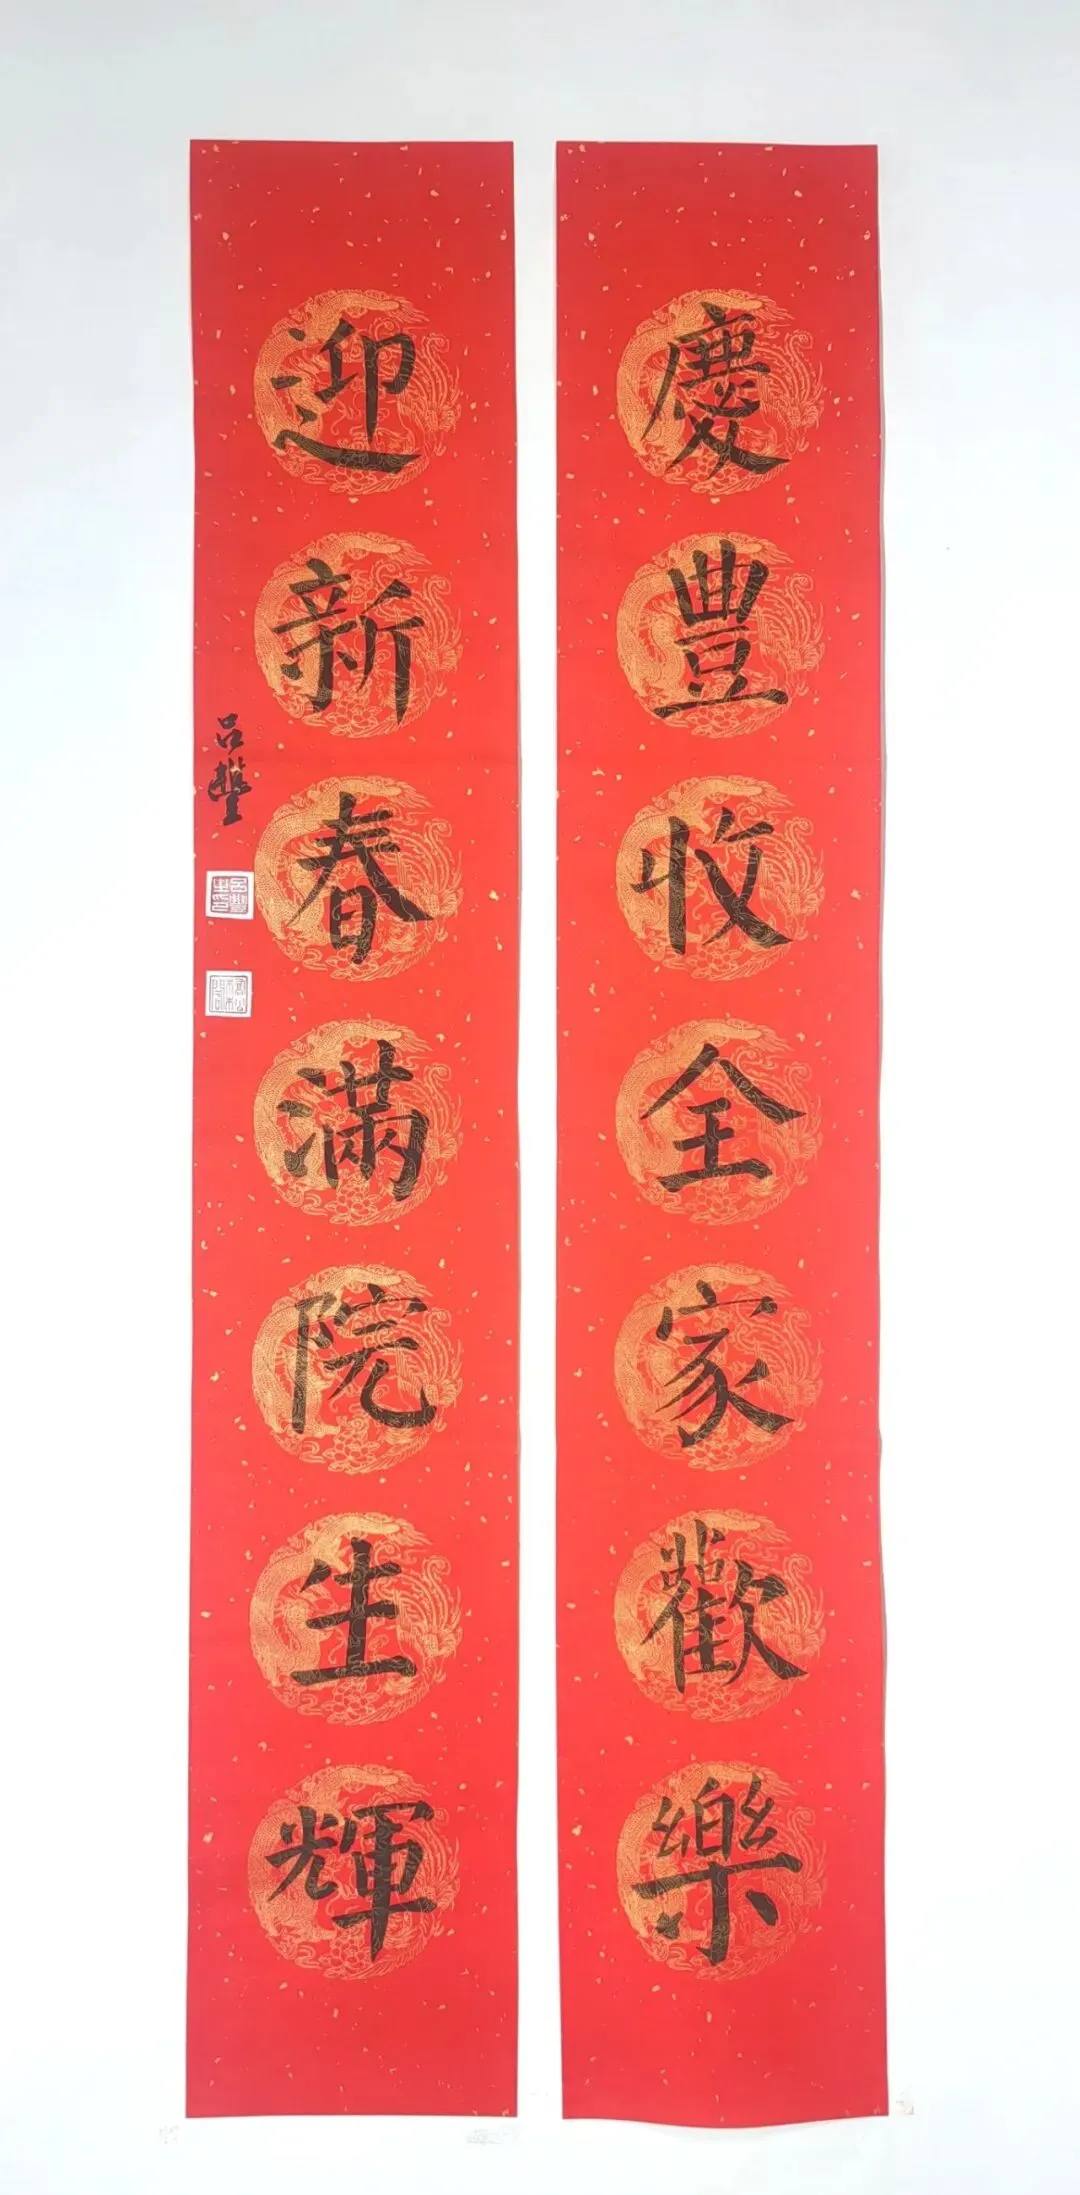 慶豐收全家歡樂
迎新春滿院生輝
呂豐